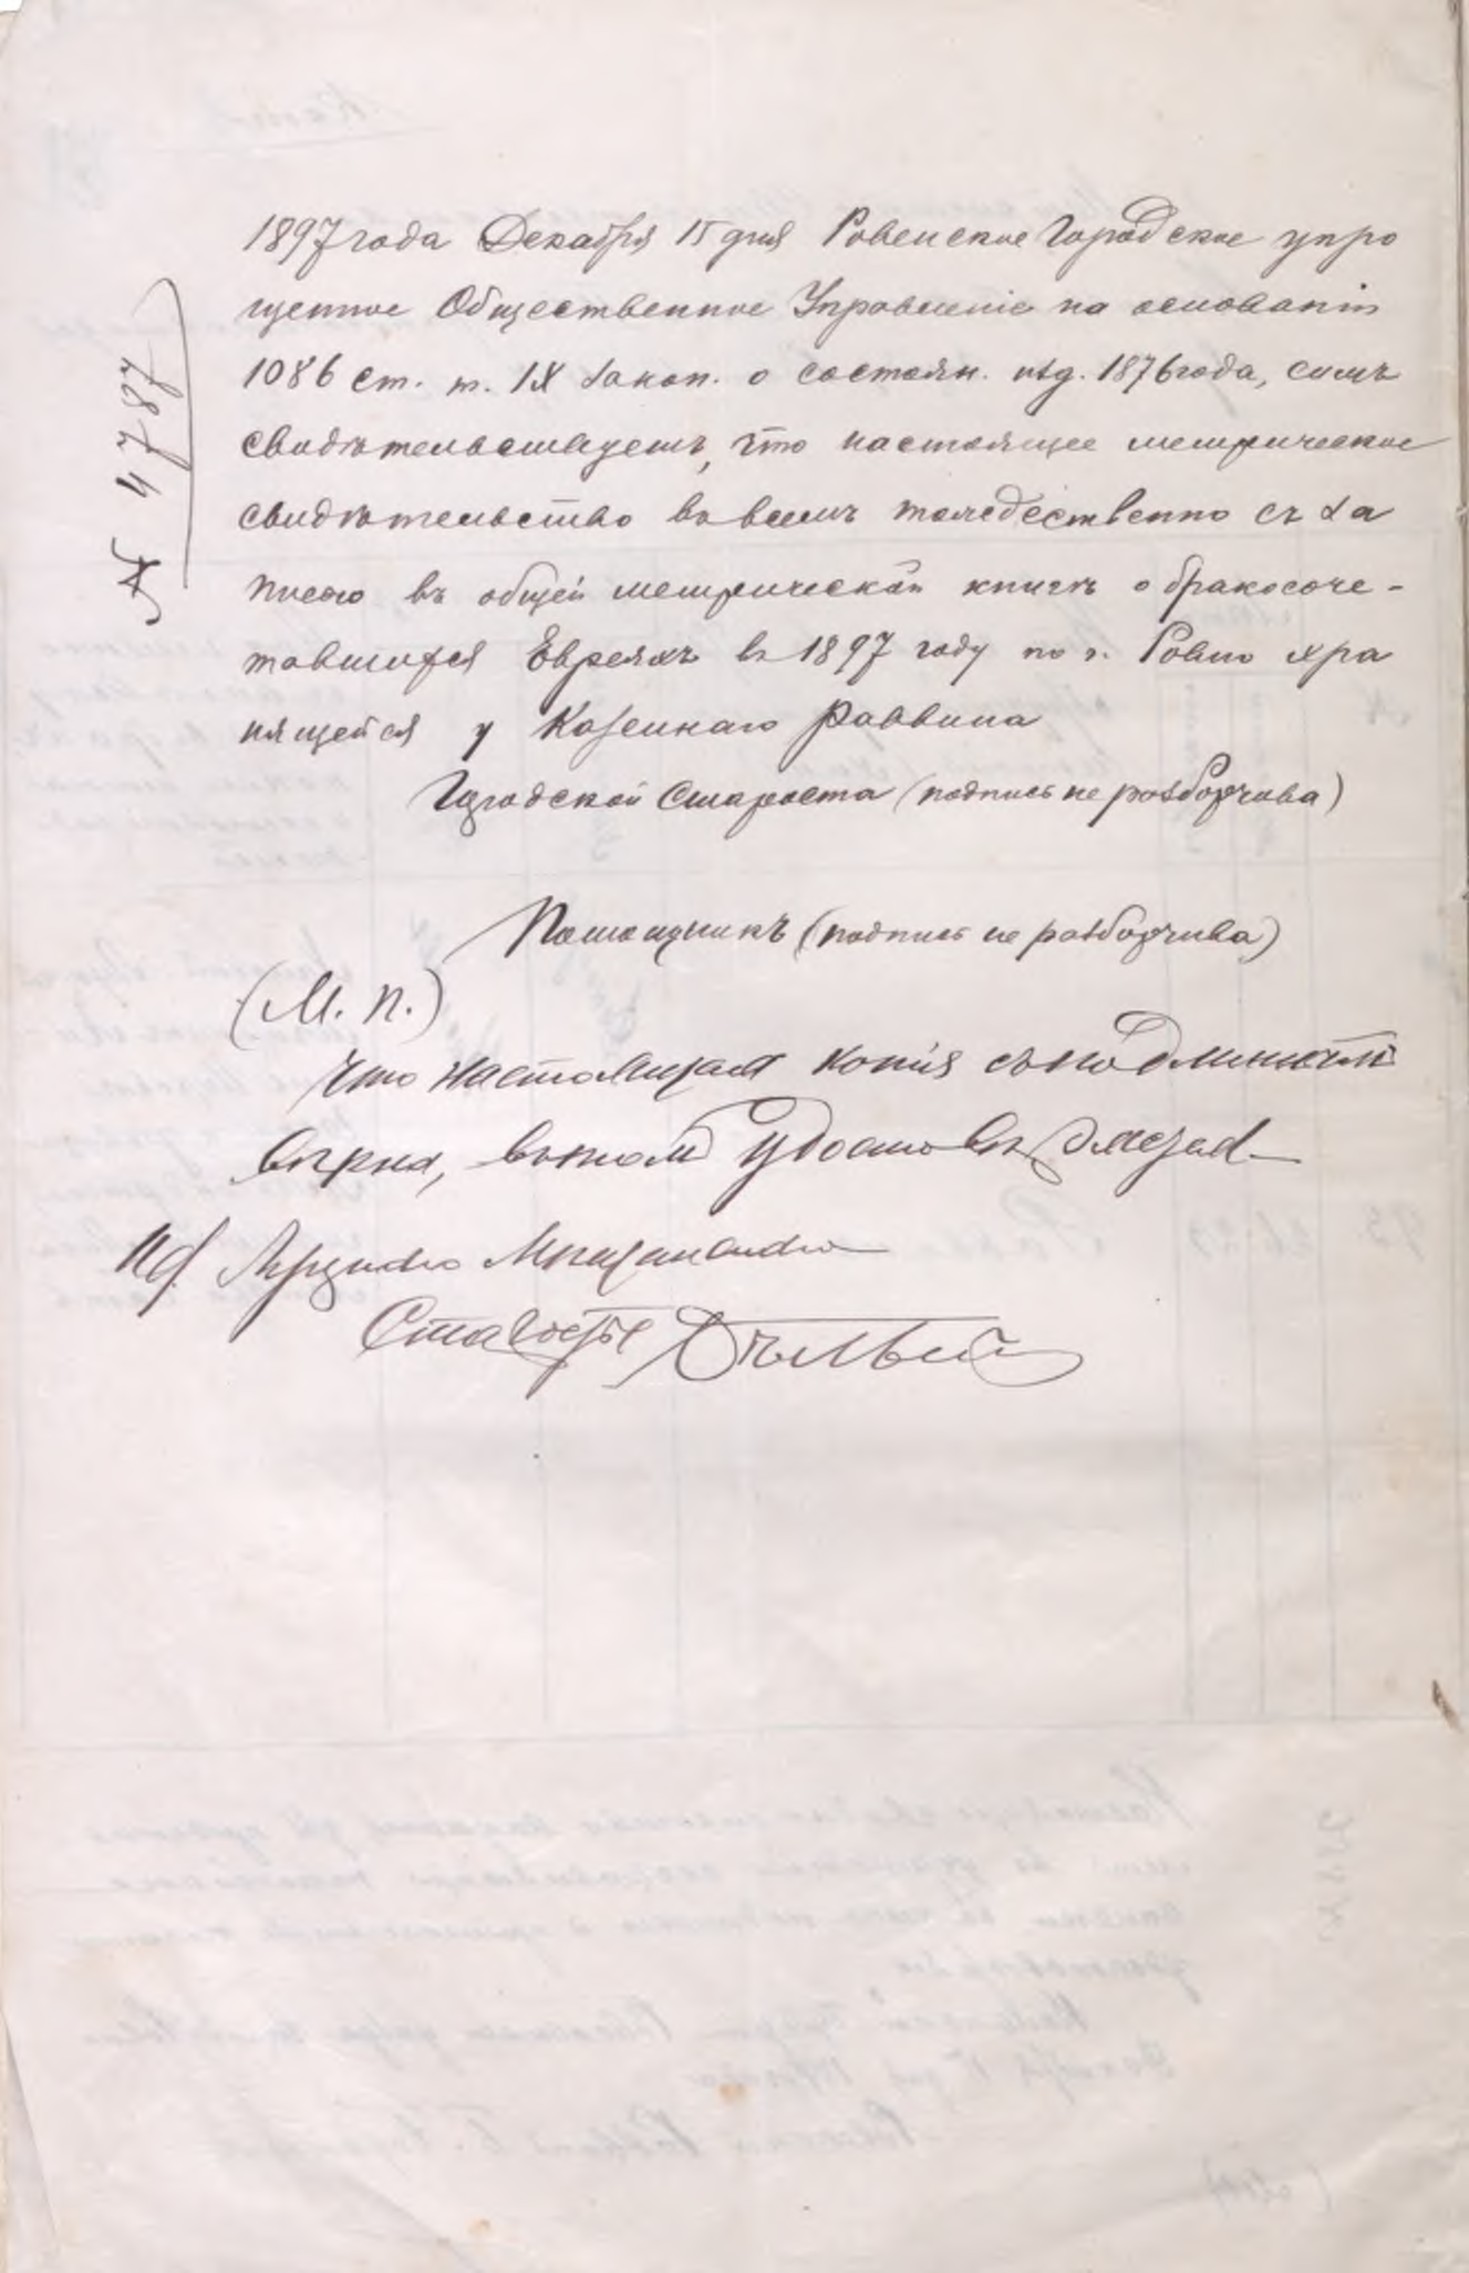 № 4787
1897 года Декабря 15 дня Ровенское Городское упро
щенное Общественное Управленіе на основаніи
1086 ст. т. IX Закон. о состоян. изд. 1876 года, симъ
свидѣтельствуетъ, что настоящее метрическое
свидѣтельство во всемъ тождественно съ за
писью въ общей метрической книгѣ о бракосоче-
тавшихся Евреяхъ въ 1897 году по г. Ровно хра
нящейся у Казеннаго Раввина
Городской Староста (подпись не разборчива)
Помощникъ (подпись не разборчива)
(М. П.)
Что настоящая копія съ подлинникомъ
вѣрна, въ томъ удостовѣряю
Ид. Луцкаго Мѣщанскаго
Старосты